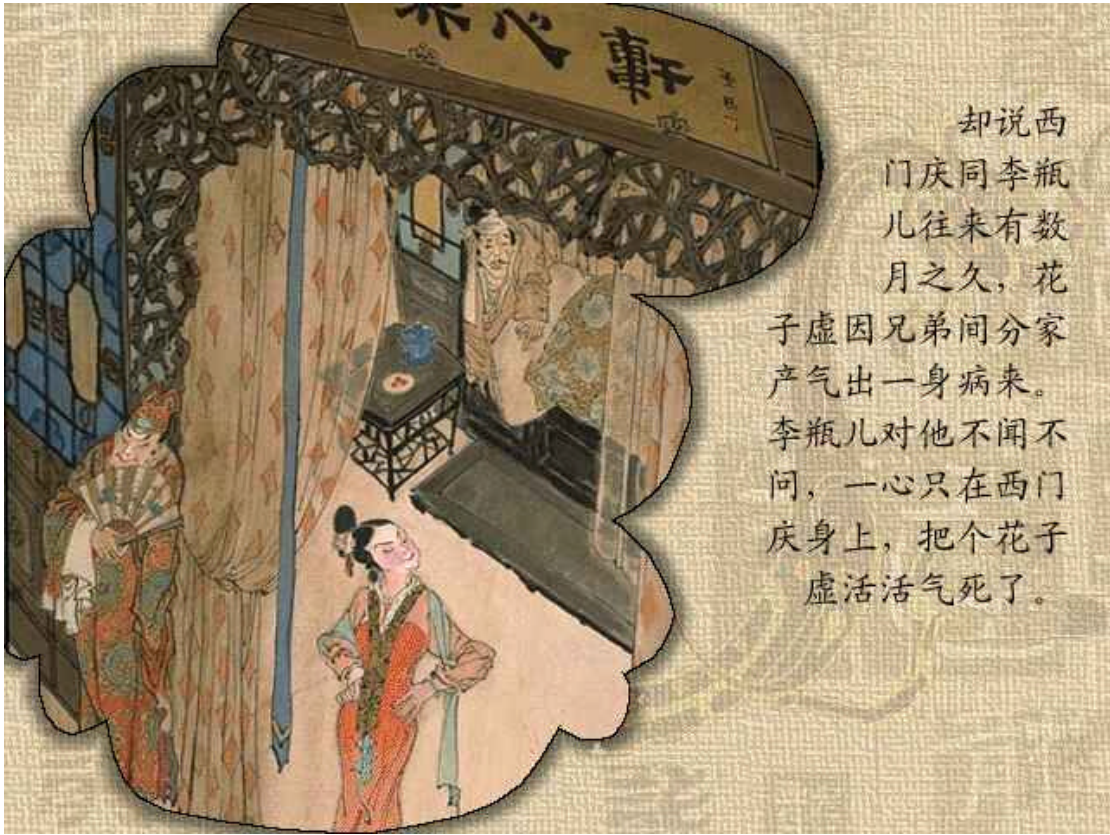 心軒
却说西
门庆同李瓶
儿往来有数
月之久，花
子虚因兄弟间分家
产气出一身病来。
李瓶儿对他不闻不
问，一心只在西门
庆身上，把个花子
虚活活气死了。